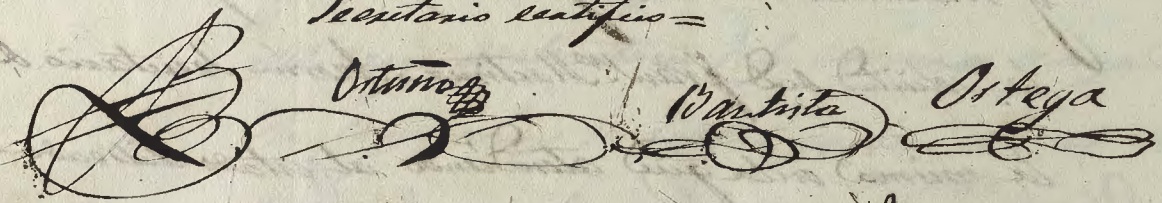 Secretario certifico=
Ortuño Bautista Ortega